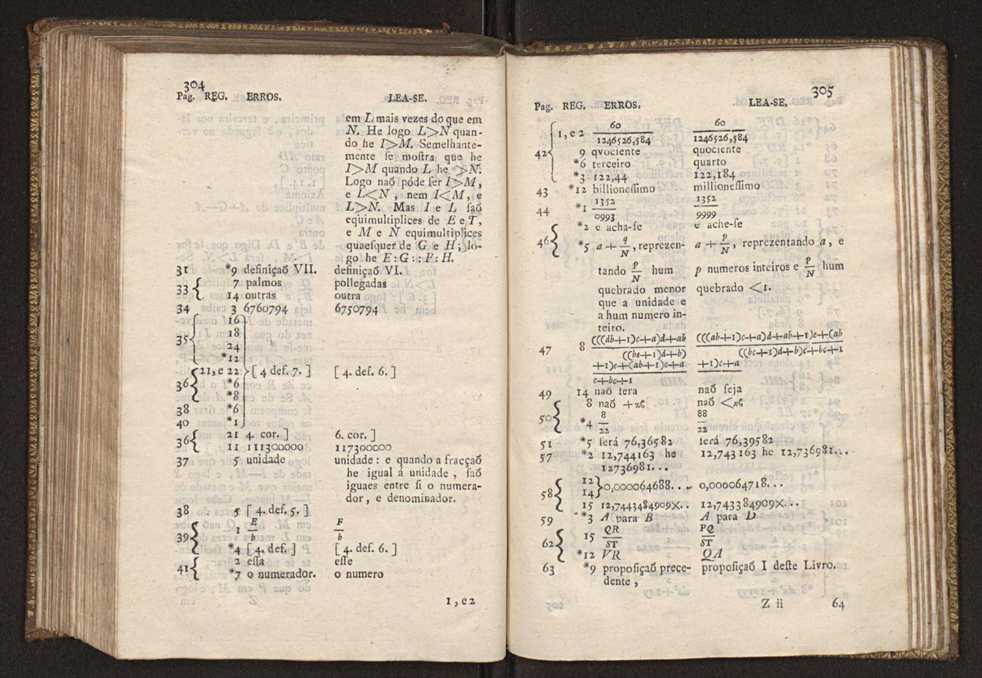 304
Pag. REG. ERROS. LEA-SE.
em L mais vezes do que em
N. He logo L>N quan-
do he I>M. Semelhante-
mente ſe moſtra que he
I>M quando L he >N.
Logo naõ póde ſer I>M,
e L<N , nem I<M, e
L>N. Mas I e L ſaõ
equimultiplices de E e T,
e M e N equimultiplices
quaeſquer de G e H; lo-
go he E:G::F:H.
31 *9 definiçaõ VII. definiçaõ VI.
33{ 7 palmos pollegadas
14 outras outra
34 3 6760794 6750794
35{ 16
18
24
*12
36{ 21,e 22 }[ 4 def. 7. ] [ 4. def. 6. ]
*6
*8
38 *6
40 *1
36{ 21 4. cor. ] 6. cor. ]
11 111300000 117300000
37 5 unidade unidade : e quando a fracçaõ
he igual á unidade , ſaõ
iguaes entre ſi o numera-
dor, e denominador.
38 5 [ 4. def. 5. ]
39{ 1 E/b F/b
*4 [ 4. def. ] [ 4. def. 6. ]
41{ 2 eſſa eſſe
*7 o numerador. o numero
1, e2
305
Pag. REG. ERROS. LEA-SE.
42{ 1, e 2 60/1246526,584 60/1246526,584
9 qvociente quociente
*6 terceiro quarto
*3 122,44 122,184
43 *12 billioneſſimo millioneſſimo
44 *1 1352/0993 1352/9999
46{ *2 e acha-ſe e ache-ſe
*5 a + q/N, reprezen- a + p/N, reprezentando a, e
tando p/N hum p numeros inteiros e p/N hum
quebrado menor quebrado <1.
que a unidade e
a hum numero in-
teiro.
47 8 (((db+1)c+a)d+ab/((bc+1)d+b) (((ab+1)c+a)d+ab+1)e+(ab/((bc+1)d+b)e+bc+1
+1)e+(ab+1)c+a/c+bc+1 +1)c+a
49 14 naõ ſera naõ ſeja
50{ 8 naõ +x naõ <x
*4 8/22 88/22
51 *5 ſerá 76,36582 ſerá 76,39582
57 *2 12,744163 he 12,743163 he 12,736981...
12736981...
58{ 12
14}0,000064688... 0,000064718...
15 12,7443484909X.. 12,743384909X...
59 *3 A para B A para D
62{ 15 QR/ST PQ/ST
*12 VR QA
63 *9 propoſiçaõ prece- propoſiçaõ I deſte Livro.
dente ,
Z ii 64